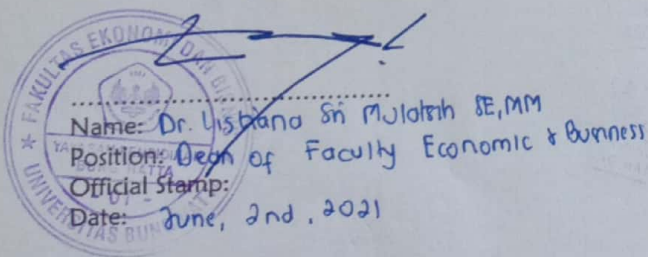 FAKULTAS EKONOMI DAN
UNIVERSITAS BUNG
Name: Dr. Listiana Sri Mulatsih SE,MM
Position: Dean of Faculty Economic & Business
Official Stamp:
Date: June, 2nd, 2021